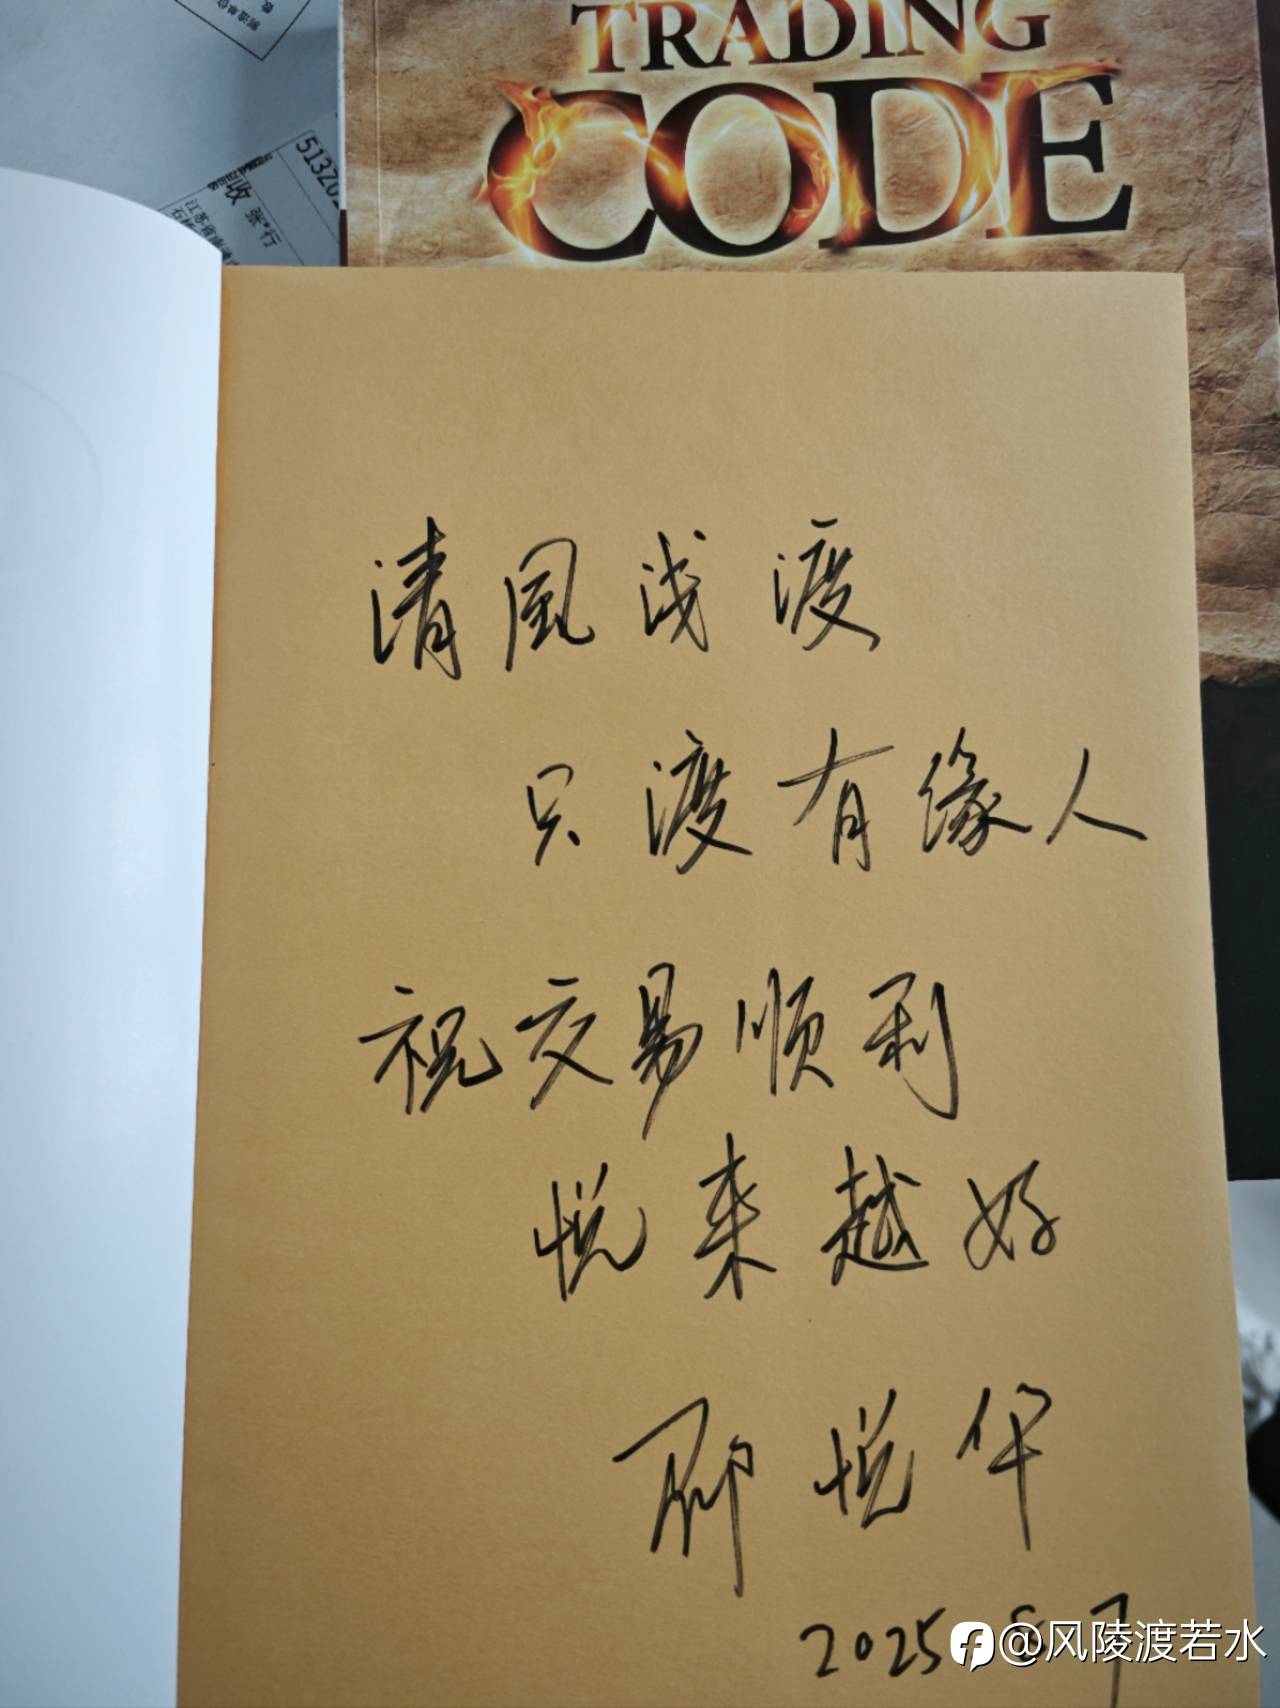 TRADING
CODE
5132
收 张*行
清風浅渡
只渡有缘人
祝交易顺利
悦来越好
邢悦华
2025 8 7
@风陵渡若水